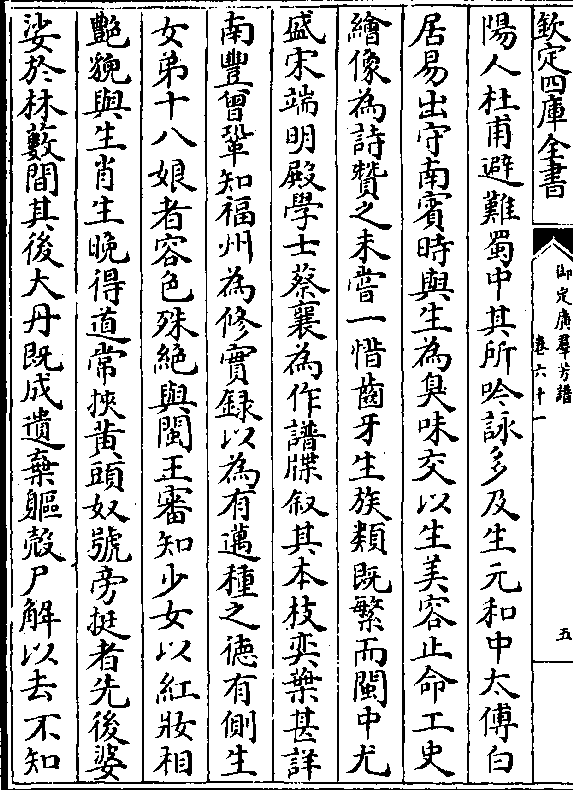 欽定四庫全書
御定廣羣芳譜
卷六十一
五
陽人杜甫避難蜀中其所吟詠多及生元和中太傅白
居易出守南賓時與生為臭味交以生美容止命工史
繪像為詩贊之未嘗一惜齒牙生族類既繁而閩中尤
盛宋端明殿學士蔡襄為作譜牒叙其本枝奕葉甚詳
南豐曾鞏知福州為修實録以為有邁種之德有側生
女弟十八娘者容色殊絶與閩王審知少女以紅妝相
艷貌與生肖生晚得道常挾黄頭奴號旁挺者先後婆
娑於林藪間其後大丹既成遺棄軀殻尸解以去不知